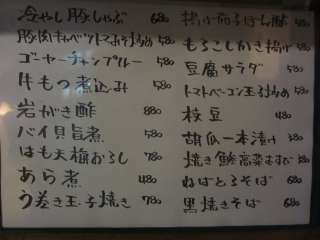 冷やし豚しゃぶ 680
豚肉キャベツトマトみそ炒め 580
ゴーヤーチャンプルー 580
牛もつ煮込み 580
岩がき酢 880
バイ貝旨煮 580
はも天梅おろし 780
あら煮 480
う巻き玉子焼き 780
揚げ茄子ぽん酢
もろこしかき揚げ
豆腐サラダ 580
トマトベーコン玉子炒め 580
枝豆 480
胡瓜一本漬け 380
焼き鯵高菜おむすび 380
ねばとろそば 680
黒焼きそば 680